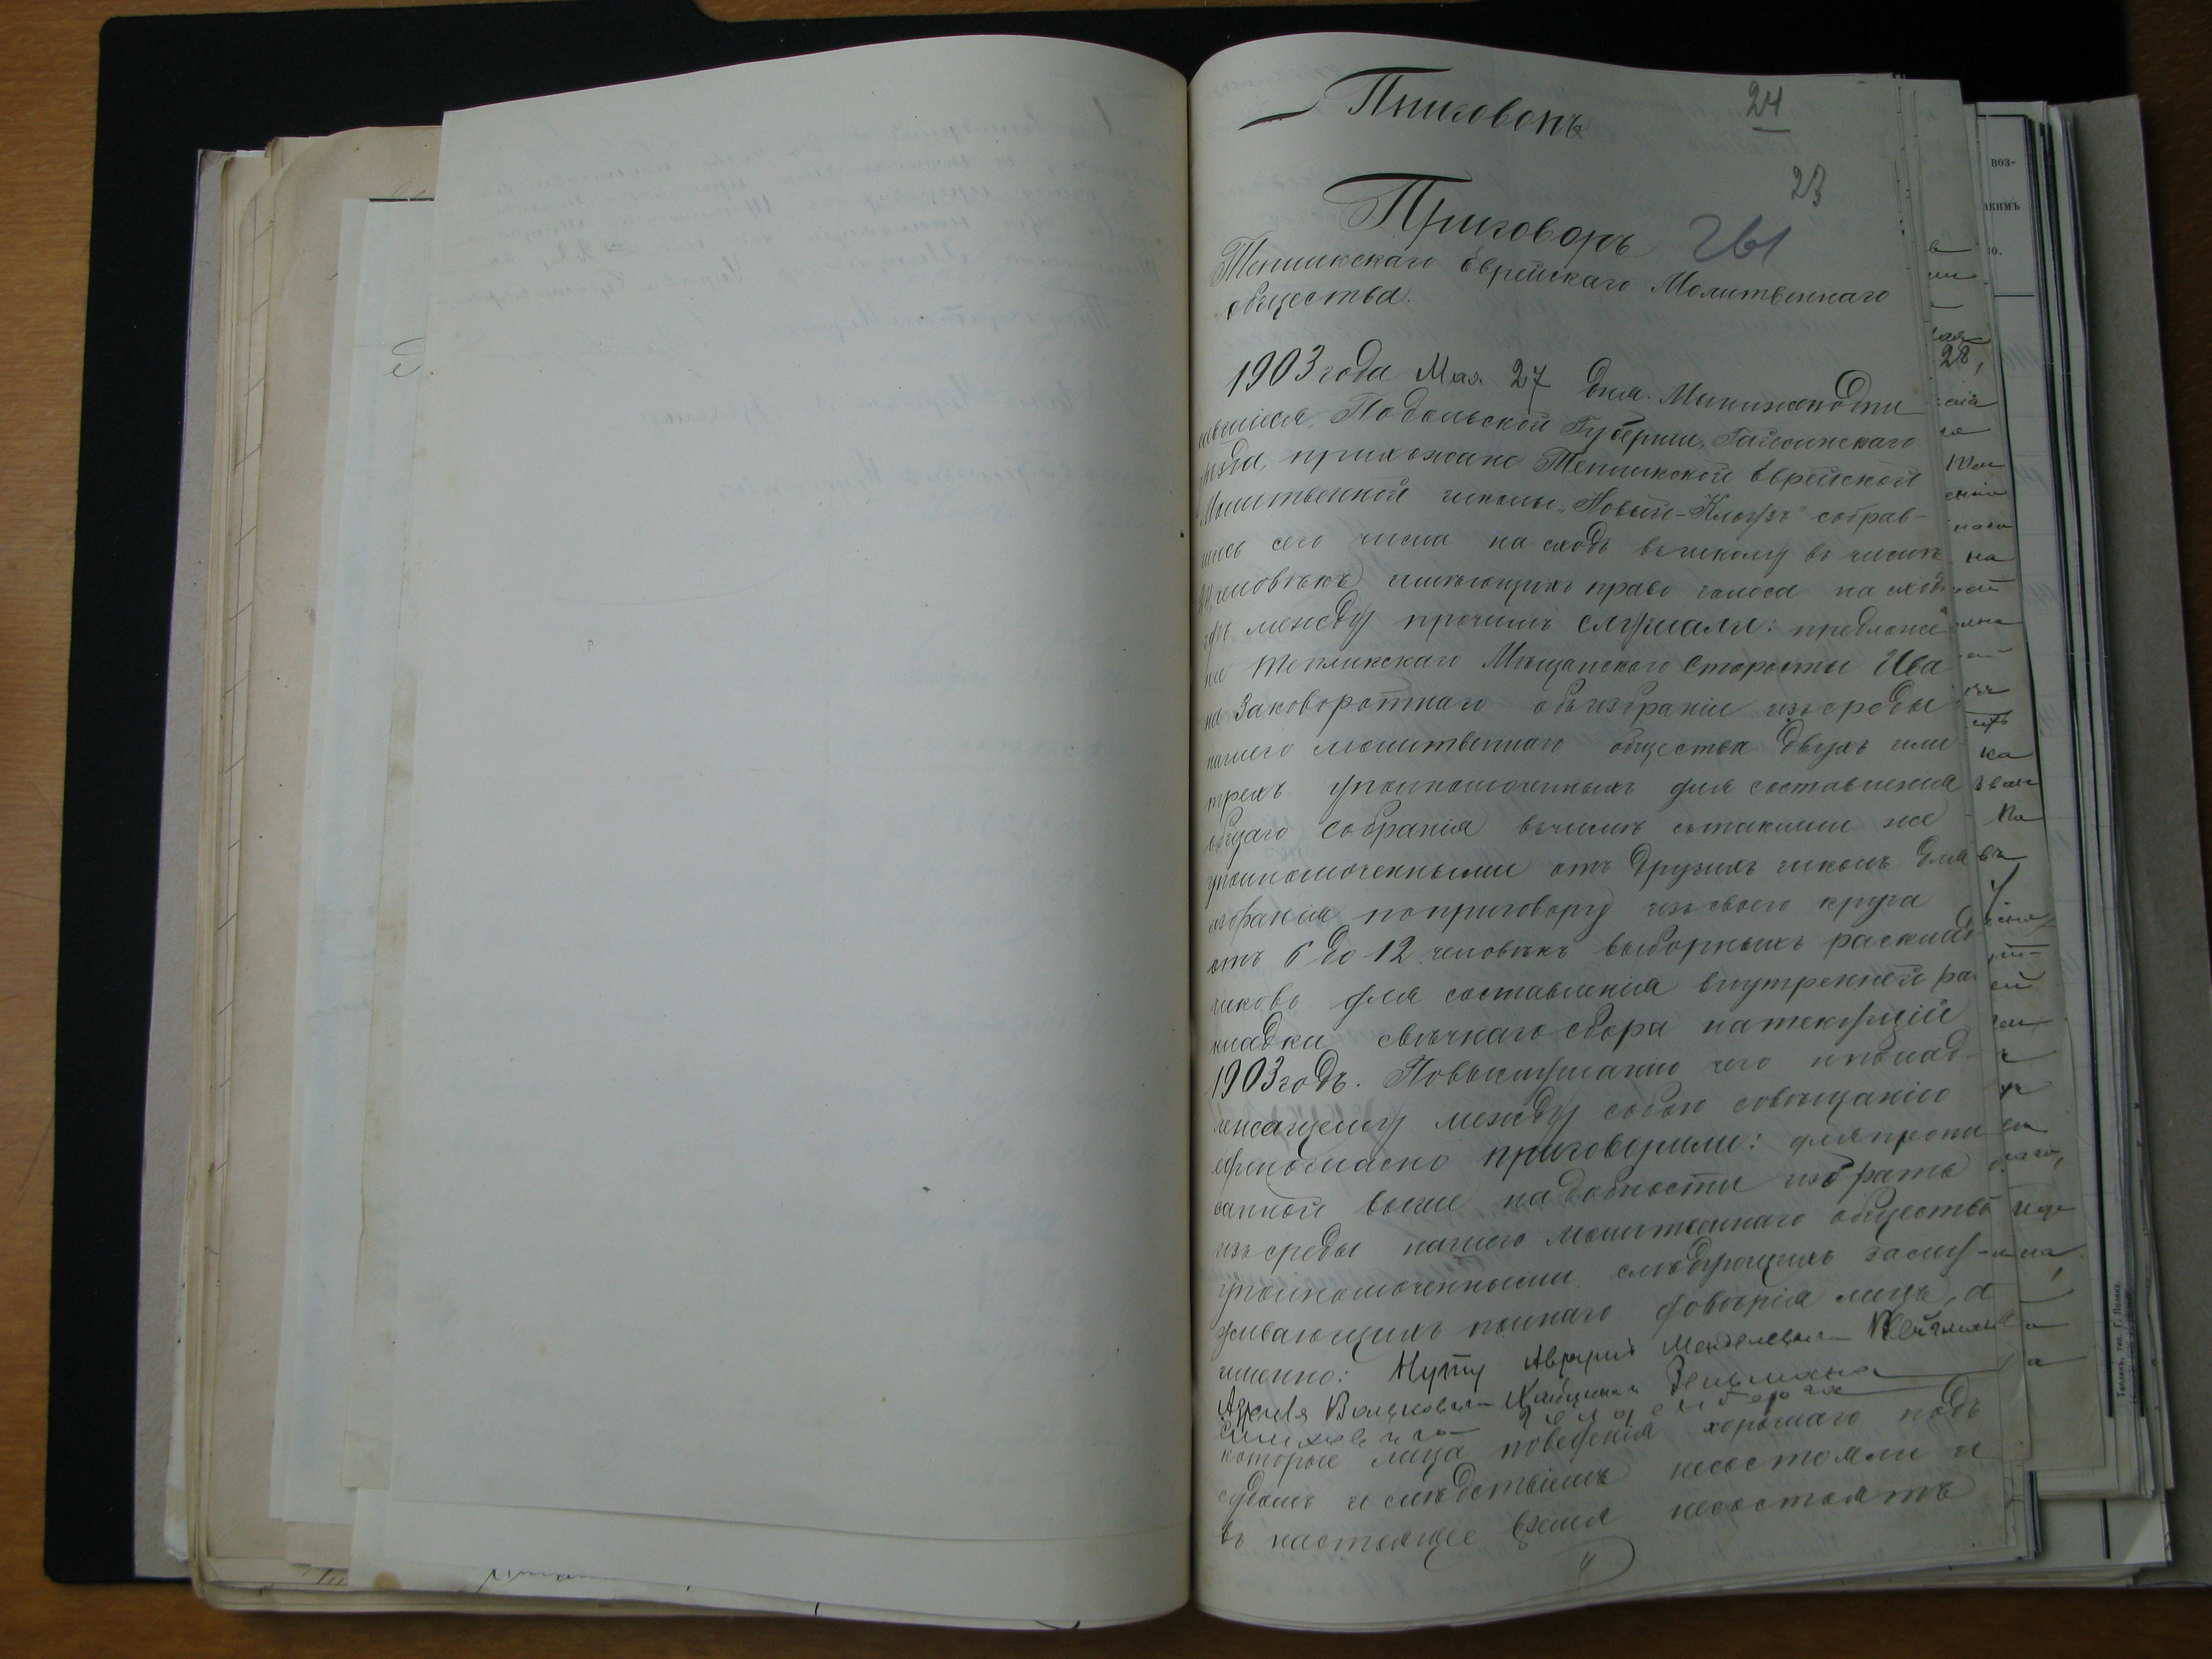 24
Приговоръ
23
Приговоръ
Тепликскаго Еврейскаго Молитвеннаго
общества.
1903 года Мая 27 дня. Мы нижеподпи
савшіеся, Подольской Губерніи, Гайсинскаго
уѣзда, прихожане Тепликской Еврейской
Молитвенной школы „Новый-Клаузъ" собрав-
шись сего числа на сходъ въ школу въ числѣ
человѣкъ имѣющихъ право голоса на сходѣ
гдѣ между прочимъ слушали: предложе
ніе Тепликскаго Мѣщанскаго Старосты Ива
на Заковоротнаго объ избраніи изъ среды
нашего молитвеннаго общества двухъ или
трехъ уполномоченныхъ для составленія
общаго собранія вмѣстѣ съ такими же
уполномоченными отъ другихъ школъ для
избранія по приговору изъ своего круга
отъ 6 до 12 человѣкъ выборныхъ расклад
чиковъ для составленія внутренней ра
кладки свѣчнаго сбора на текущій
1903 годъ. По выслушанію чего и по над-
лежащему между собою совѣщанію
единогласно приговорили: для пропи
санной выше надобности избрать
изъ среды нашего молитвеннаго общества
уполномоченными слѣдующихъ заслу-
живающихъ полнаго довѣрія лицъ, а
именно: Нуту Авруму Менделевича
Волковича Зельмана
которые лица поведенія хорошаго подъ
судомъ и слѣдствіемъ несостояли и
въ настоящее время несостоятъ
28,
на
воз-